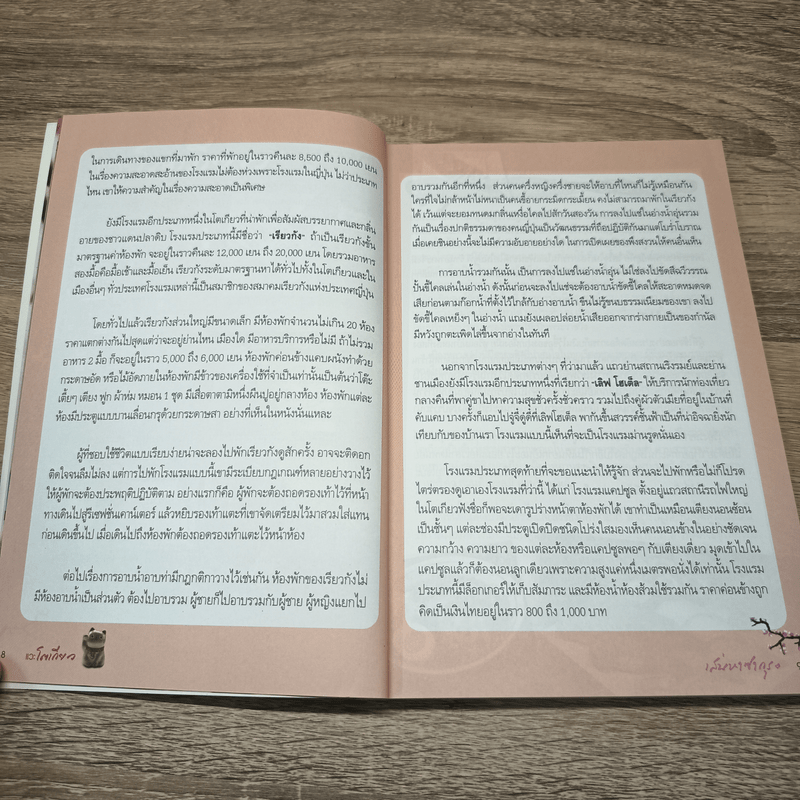 ในการเดินทางของแขกที่มาพัก ราคาที่พักอยู่ในราวคืนละ 8,500 ถึง 10,000 เยน
ในเรื่องความสะอาดสะอ้านของโรงแรมไม่ต้องห่วงเพราะโรงแรมในญี่ปุ่น ไม่ว่าประเภท
ไหน เขาให้ความสำคัญในเรื่องความสะอาดเป็นพิเศษ
ยังมีโรงแรมอีกประเภทหนึ่งในโตเกียวที่น่าพักเพื่อสัมผัสบรรยากาศและกลิ่น
อายของชาวแดนปลาดิบ โรงแรมประเภทนี้มีชื่อว่า "เรียวกัง" ถ้าเป็นเรียวกังชั้น
มาตรฐานค่าห้องพัก จะอยู่ในราวคืนละ 12,000 เยน ถึง 20,000 เยน โดยรวมอาหาร
สองมื้อคือมื้อเช้าและมื้อเย็น เรียวกังระดับมาตรฐานหาได้ทั่วไปทั้งในโตเกียวและใน
เมืองอื่นๆ ทั่วประเทศโรงแรมเหล่านี้เป็นสมาชิกของสมาคมเรียวกังแห่งประเทศญี่ปุ่น
โดยทั่วไปแล้วเรียวกังส่วนใหญ่มีขนาดเล็ก มีห้องพักจำนวนไม่เกิน 20 ห้อง
ราคาแตกต่างกันไปสุดแต่ว่าจะอยู่ย่านไหน เมืองใด มีอาหารบริการหรือไม่มี ถ้าไม่รวม
อาหาร 2 มื้อ ก็จะอยู่ในราว 5,000 ถึง 6,000 เยน ห้องพักค่อนข้างแคบผนังทำด้วย
กระดาษอัด หรือไม้อัดภายในห้องพักมีข้าวของเครื่องใช้ที่จำเป็นเท่านั้นเป็นต้นว่าโต๊ะ
เตี้ยๆ เตียง ฟูก ผ้าห่ม หมอน 1 ชุด มีเสื่อตาตามิหนึ่งผืนปูอยู่กลางห้อง ห้องพักแต่ละ
ห้องมีประตูแบบบานเลื่อนกรุด้วยกระดาษสา อย่างที่เห็นในหนังนั่นแหละ
ผู้ที่ชอบใช้ชีวิตแบบเรียบง่ายน่าจะลองไปพักเรียวกังดูสักครั้ง อาจจะติดอก
ติดใจจนลืมไม่ลง แต่การไปพักโรงแรมแบบนี้เขามีระเบียบกฎเกณฑ์หลายอย่างวางไว้
ให้ผู้พักจะต้องประพฤติปฏิบัติตาม อย่างแรกก็คือ ผู้พักจะต้องถอดรองเท้าไว้ที่หน้า
ทางเดินไปสู่รีเซฟชั่นเคาน์เตอร์ แล้วหยิบรองเท้าแตะที่เขาจัดเตรียมไว้มาสวมใส่แทน
ก่อนเดินขึ้นไป เมื่อเดินไปถึงห้องพักต้องถอดรองเท้าแตะไว้หน้าห้อง
ต่อไปเรื่องการอาบน้ำอาบท่ามีกฎกติกาวางไว้เช่นกัน ห้องพักของเรียวกังไม่
มีห้องอาบน้ำเป็นส่วนตัว ต้องไปอาบรวม ผู้ชายก็ไปอาบรวมกับผู้ชาย ผู้หญิงแยกไป
8
แวะโตเกียว
อาบรวมกันอีกที่หนึ่ง ส่วนคนครึ่งหญิงครึ่งชายจะให้อาบที่ไหนก็ไม่รู้เหมือนกัน
ใครที่ใจไม่กล้าหน้าไม่หนาเป็นคนขี้อายกระมิดกระเมี้ยน คงไม่สามารถมาพักเรียวกัง
ได้ เว้นแต่จะยอมทนดมกลิ่นเหงื่อไคลไปสักวันสองวัน การลงไปแช่ในอ่างน้ำอุ่นรวม
กันเป็นเรื่องปกติธรรมดาของคนญี่ปุ่นเป็นวัฒนธรรมที่ถือปฏิบัติกันมาแต่โบร่ำโบราณ
เมื่อเคยชินอย่างนี้จะไม่มีความอับอายอย่างใด ในการเปิดเผยของพึงสงวนให้คนอื่นเห็น
การอาบน้ำรวมกันนั้น เป็นการลงไปแช่ในอ่างน้ำอุ่น ไม่ใช่ลงไปขัดสีฉวีวรรณ
ปั้นขี้ไคลเล่นในอ่างน้ำ ดังนั้นก่อนจะลงไปแช่จะต้องอาบน้ำขัดขี้ไคลให้สะอาดหมดจด
เสียก่อนตามก๊อกน้ำที่ตั้งไว้ใกล้กับอ่างอาบน้ำ ขืนไม่รู้ขนบธรรมเนียมของเขา ลงไป
ขัดขี้ไคลเหยิงๆ ในอ่างน้ำ แถมยังเผลอปล่อยน้ำเสียออกจากร่างกายเป็นของกำนัล
มีหวังถูกตะเพิดไล่ขึ้นจากอ่างในทันที
นอกจากโรงแรมประเภทต่างๆ ที่ว่ามาแล้ว แถวย่านสถานเริงรมย์และย่าน
ชานเมืองยังมีโรงแรมอีกประเภทหนึ่งที่เรียกว่า "เลิฟ โฮเต็ล" ให้บริการนักท่องเที่ยว
กลางคืนที่พาคู่ขาไปหาความสุขชั่วครั้งชั่วคราว รวมไปถึงคู่ผัวตัวเมียที่อยู่ในบ้านที่
คับแคบ บางครั้งก็แอบไปจู๋จี๋ดู๋ดี๋ที่เลิฟโฮเต็ล พากันขึ้นสวรรค์ชั้นฟ้าเป็นที่น่าอิจฉายิ่งนัก
เทียบกับของบ้านเรา โรงแรมแบบนี้เห็นทีจะเป็นโรงแรมม่านรูดนั่นเอง
โรงแรมประเภทสุดท้ายที่จะขอแนะนำให้รู้จัก ส่วนจะไปพักหรือไม่ก็โปรด
ไตร่ตรองดูเอาเองโรงแรมที่ว่านี้ ได้แก่ โรงแรมแคปซูล ตั้งอยู่แถวสถานีรถไฟใหญ่
ในโตเกียวฟังชื่อก็พอจะเดารูปร่างหน้าตาห้องพักได้ เขาทำเป็นเหมือนเตียงนอนซ้อน
เป็นชั้นๆ แต่ละช่องมีประตูเปิดปิดชนิดโปร่งใสมองเห็นคนนอนข้างในอย่างชัดเจน
ความกว้าง ความยาว ของแต่ละห้องหรือแคปซูลพอๆ กับเตียงเดี่ยว มุดเข้าไปใน
แคปซูลแล้วก็ต้องนอนลูกเดียวเพราะความสูงแค่หนึ่งเมตรพอนั่งได้เท่านั้น โรงแรม
ประเภทนี้มีล็อกเกอร์ให้เก็บสัมภาระ และมีห้องน้ำห้องส้วมใช้รวมกัน ราคาค่อนข้างถูก
คิดเป็นเงินไทยอยู่ในราว 800 ถึง 1,000 บาท
เสน่หาซากุระ